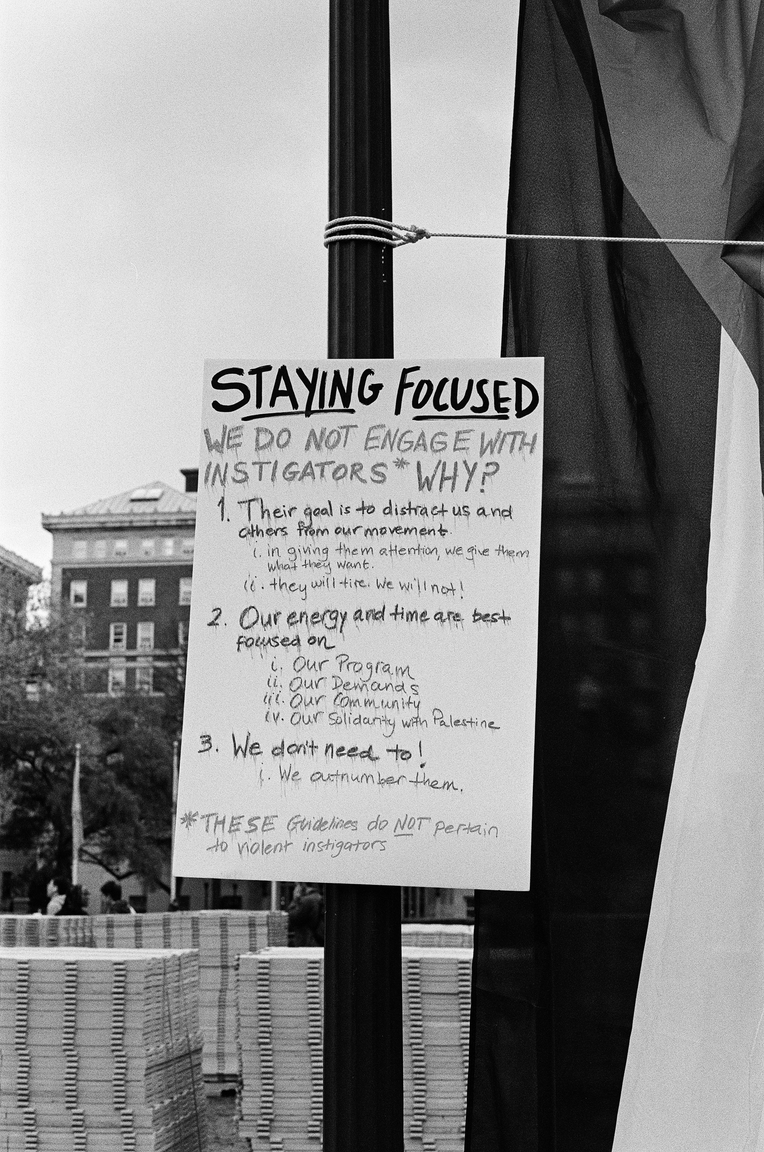 STAYING FOCUSED
WE DO NOT ENGAGE WITH
INSTIGATORS* WHY?
1. Their goal is to distract us and
others from our movement.
i. in giving them attention, we give them
what they want.
ii. they will tire. We will not!
2. Our energy and time are best
focused on
i. Our Program
ii. Our Demands
iii. Our Community
iv. Our Solidarity with Palestine
3. We don't need to!
i. We outnumber them.
*THESE Guidelines do NOT pertain
to violent instigators